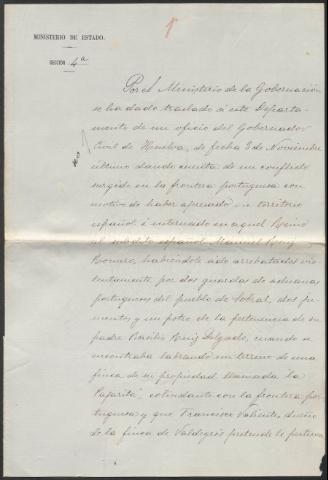 1º
MINISTERIO DE ESTADO.
SECCIÓN 4ª
Por el Ministerio de la Gobernación
se ha dado traslado á este Departa-
mento de un oficio del Gobernador
Civil de Huelva, de fecha 3 de Noviembre
último dando cuenta de un conflicto
surgido en la frontera portuguesa con
motivo de haber apresado en territorio
español é internado en aquel Reino
al súbdito español Manuel Ruiz
Romero, habiéndole sido arrebatadas vio-
lentamente por dos guardas de aduanas
portugueses del pueblo de Sobral, dos ju-
mentos y un potro de la pertenencia de su
padre Basilio Ruiz Delgado, cuando se
encontraba labrando un terreno de una
finca de su propiedad llamada "la
Pajarita", colindante con la frontera por-
tuguesa y que Francisco Valiente, dueño
de la finca de Valdegrís pretende le pertenece